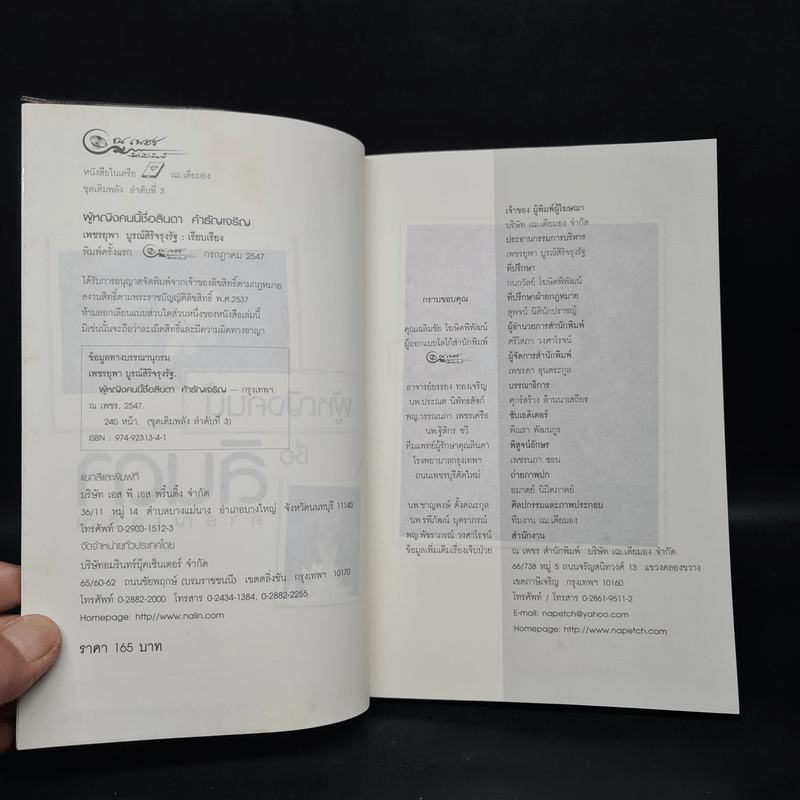 ณ เพชร
สำนักพิมพ์
หนังสือในเครือ เฌ.เดียมอง
ชุดเติมพลัง ลำดับที่ 3
ผู้หญิงคนนี้ชื่อลินดา ค้าธัญเจริญ
เพชรยุพา บูรณ์สิริจรุงรัฐ : เรียบเรียง
พิมพ์ครั้งแรก ณ เพชร กรกฎาคม 2547
ได้รับการอนุญาตจัดพิมพ์จากเจ้าของลิขสิทธิ์ตามกฎหมาย
สงวนสิทธิ์ตามพระราชบัญญัติลิขสิทธิ์ พ.ศ.2537
ห้ามลอกเลียนแบบส่วนใดส่วนหนึ่งของหนังสือเล่มนี้
มิเช่นนั้นจะถือว่าละเมิดสิทธิ์และมีความผิดทางอาญา
ข้อมูลทางบรรณานุกรม
เพชรยุพา บูรณ์สิริจรุงรัฐ.
ผู้หญิงคนนี้ชื่อลินดา ค้าธัญเจริญ — กรุงเทพฯ.
ณ เพชร. 2547.
240 หน้า. (ชุดเติมพลัง ลำดับที่ 3)
ISBN : 974-92313-4-1
แยกสีและพิมพ์ที่
บริษัท เอส พี เอส พริ้นติ้ง จำกัด
36/11 หมู่ 14 ตำบลบางแม่นาง อำเภอบางใหญ่ จังหวัดนนทบุรี 11140
โทรศัพท์ 0-2903-1512-3
จัดจำหน่ายทั่วประเทศโดย
บริษัทอมรินทร์บุ๊คเซ็นเตอร์ จำกัด
65/60-62 ถนนชัยพฤกษ์ (บรมราชชนนี) เขตตลิ่งชัน กรุงเทพฯ 10170
โทรศัพท์ 0-2882-2000 โทรสาร 0-2434-1384, 0-2882-2255
Homepage: http//www.nalin.com
ราคา 165 บาท
กราบขอบคุณ
คุณเฉลิมชัย โฆษิตพิพัฒน์
ผู้ออกแบบโลโก้สำนักพิมพ์
ณ เพชร
อาจารย์ยรรยง ทองเจริญ
นพ.ประณต นิพัทธสัจก์
พญ.วรรณนภา เพชรเครือ
นพ.ฐิติกร ชวี
ทีมแพทย์ผู้รักษาคุณลินดา
โรงพยาบาลกรุงเทพฯ
ถนนเพชรบุรีตัดใหม่
นพ.ชาญพงษ์ ตั้งคณะกุล
นพ.รพีภัฒน์ บุตราภรณ์
พญ.พัชราภรณ์ วงศาโรจน์
ข้อมูลเพิ่มเติมเรื่องเจ็บป่วย
เจ้าของ ผู้พิมพ์ผู้โฆษณา
บริษัท เฌ.เดียมอง จำกัด
ประธานกรรมการบริหาร
เพชรยุพา บูรณ์สิริจรุงรัฐ
ที่ปรึกษา
กนกวัลย์ โฆษิตพิพัฒน์
ที่ปรึกษาฝ่ายกฎหมาย
สุพจน์ นิตินักปราชญ์
ผู้อำนวยการสำนักพิมพ์
ศรีโสภา วงศาโรจน์
ผู้จัดการสำนักพิมพ์
เพชรดา อุ่นตระกูล
บรรณาธิการ
ศุกร์สร้าง ล้านนาเสถียร
ซับเอดิเตอร์
พิณรา พัฒนกูร
พิสูจน์อักษร
เพชรนภา ซอน
ถ่ายภาพปก
อมาตย์ นิมิตภาคย์
ศิลปกรรมและภาพประกอบ
ทีมงาน เฌ.เดียมอง
สำนักงาน
ณ เพชร สำนักพิมพ์ บริษัท เฌ.เดียมอง จำกัด
66/738 หมู่ 5 ถนนจรัญสนิทวงศ์ 13 แขวงคลองขวาง
เขตภาษีเจริญ กรุงเทพฯ 10160
โทรศัพท์ / โทรสาร 0-2861-9511-2
E-mail: napetch@yahoo.com
Homepage: http://www.napetch.com